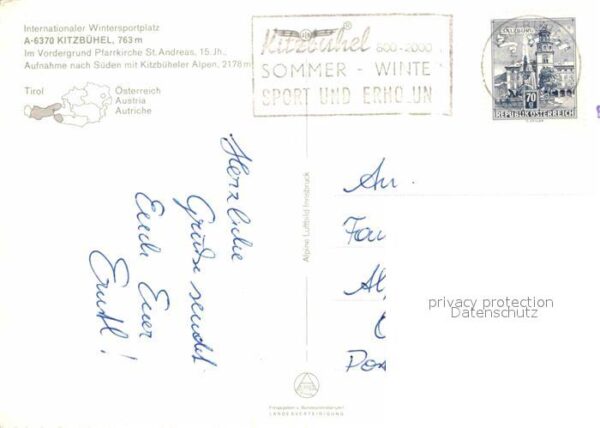 Internationaler Wintersportplatz
A-6370 KITZBÜHEL, 763 m
Im Vordergrund Pfarrkirche St. Andreas, 15. Jh.,
Aufnahme nach Süden mit Kitzbüheler Alpen, 2178 m
Tirol
Österreich
Austria
Autriche
Kitzbühel 800-2000
SOMMER - WINTE
SPORT UND ERHO UN
SALZBURG
70
REPUBLIK ÖSTERREICH
Herzliche
Grüße sendet
Euch Euer
Ernstl!
Alpine Luftbild Innsbruck
An
Fa
privacy protection
Datenschutz
LANDESVERTEIDIGUNG